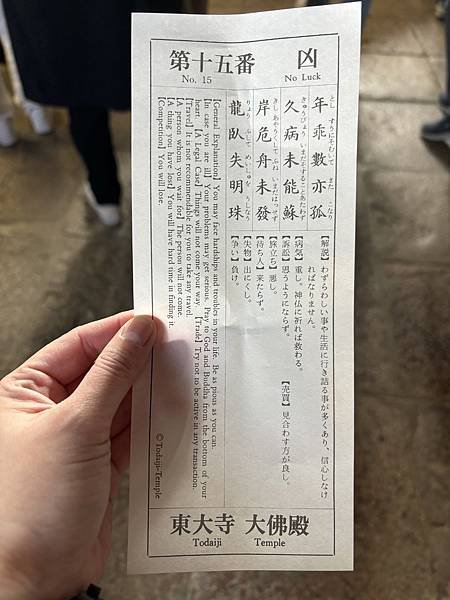 第十五番 凶
No. 15 No Luck
年乖數亦孤
久病未能蘇
岸危舟未發
龍臥失明珠
【解説】わずらわしい事や生活に行き詰る事が多くあり、信心しなけ
ればなりません。
【病気】重し。神仏に祈れば救わる。
【訴訟】思うようにならず。 【売買】見合わす方が良し。
【旅立ち】悪し。
【待ち人】来たらず。
【失物】出にくし。
【争い】負け。
【General Explanation】You may face hardships and troubles in your life. Be as pious as you can.
【In case you are ill】Your problems may get serious. Pray to God and Buddha from the bottom of your
heart. 【A Legal Case】Things will not come your way. 【Trade】Try not to be active in any transaction.
【Travel】It is not recommendable for you to take any travel.
【A person whom you wait for】The person will not come.
【A thing you have lost】You will have hard time in finding it.
【Competition】You will lose.
©Todaiji-Temple
東大寺 大佛殿
Todaiji Temple